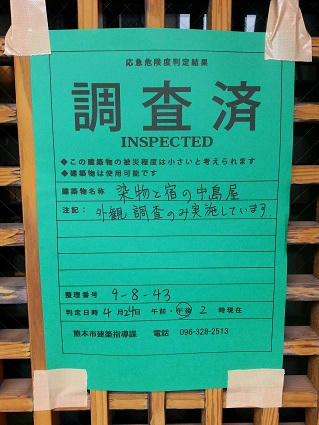 応急危険度判定結果
調査済
INSPECTED
◆この建築物の被災程度は小さいと考えられます
◆建築物は使用可能です
建築物名称 染物と宿の中島屋
注記: 外観調査のみ実施しています。
整理番号 9-8-43
判定日時 4月24日 午前・午後 2時現在
熊本市建築指導課 電話 096-328-2513